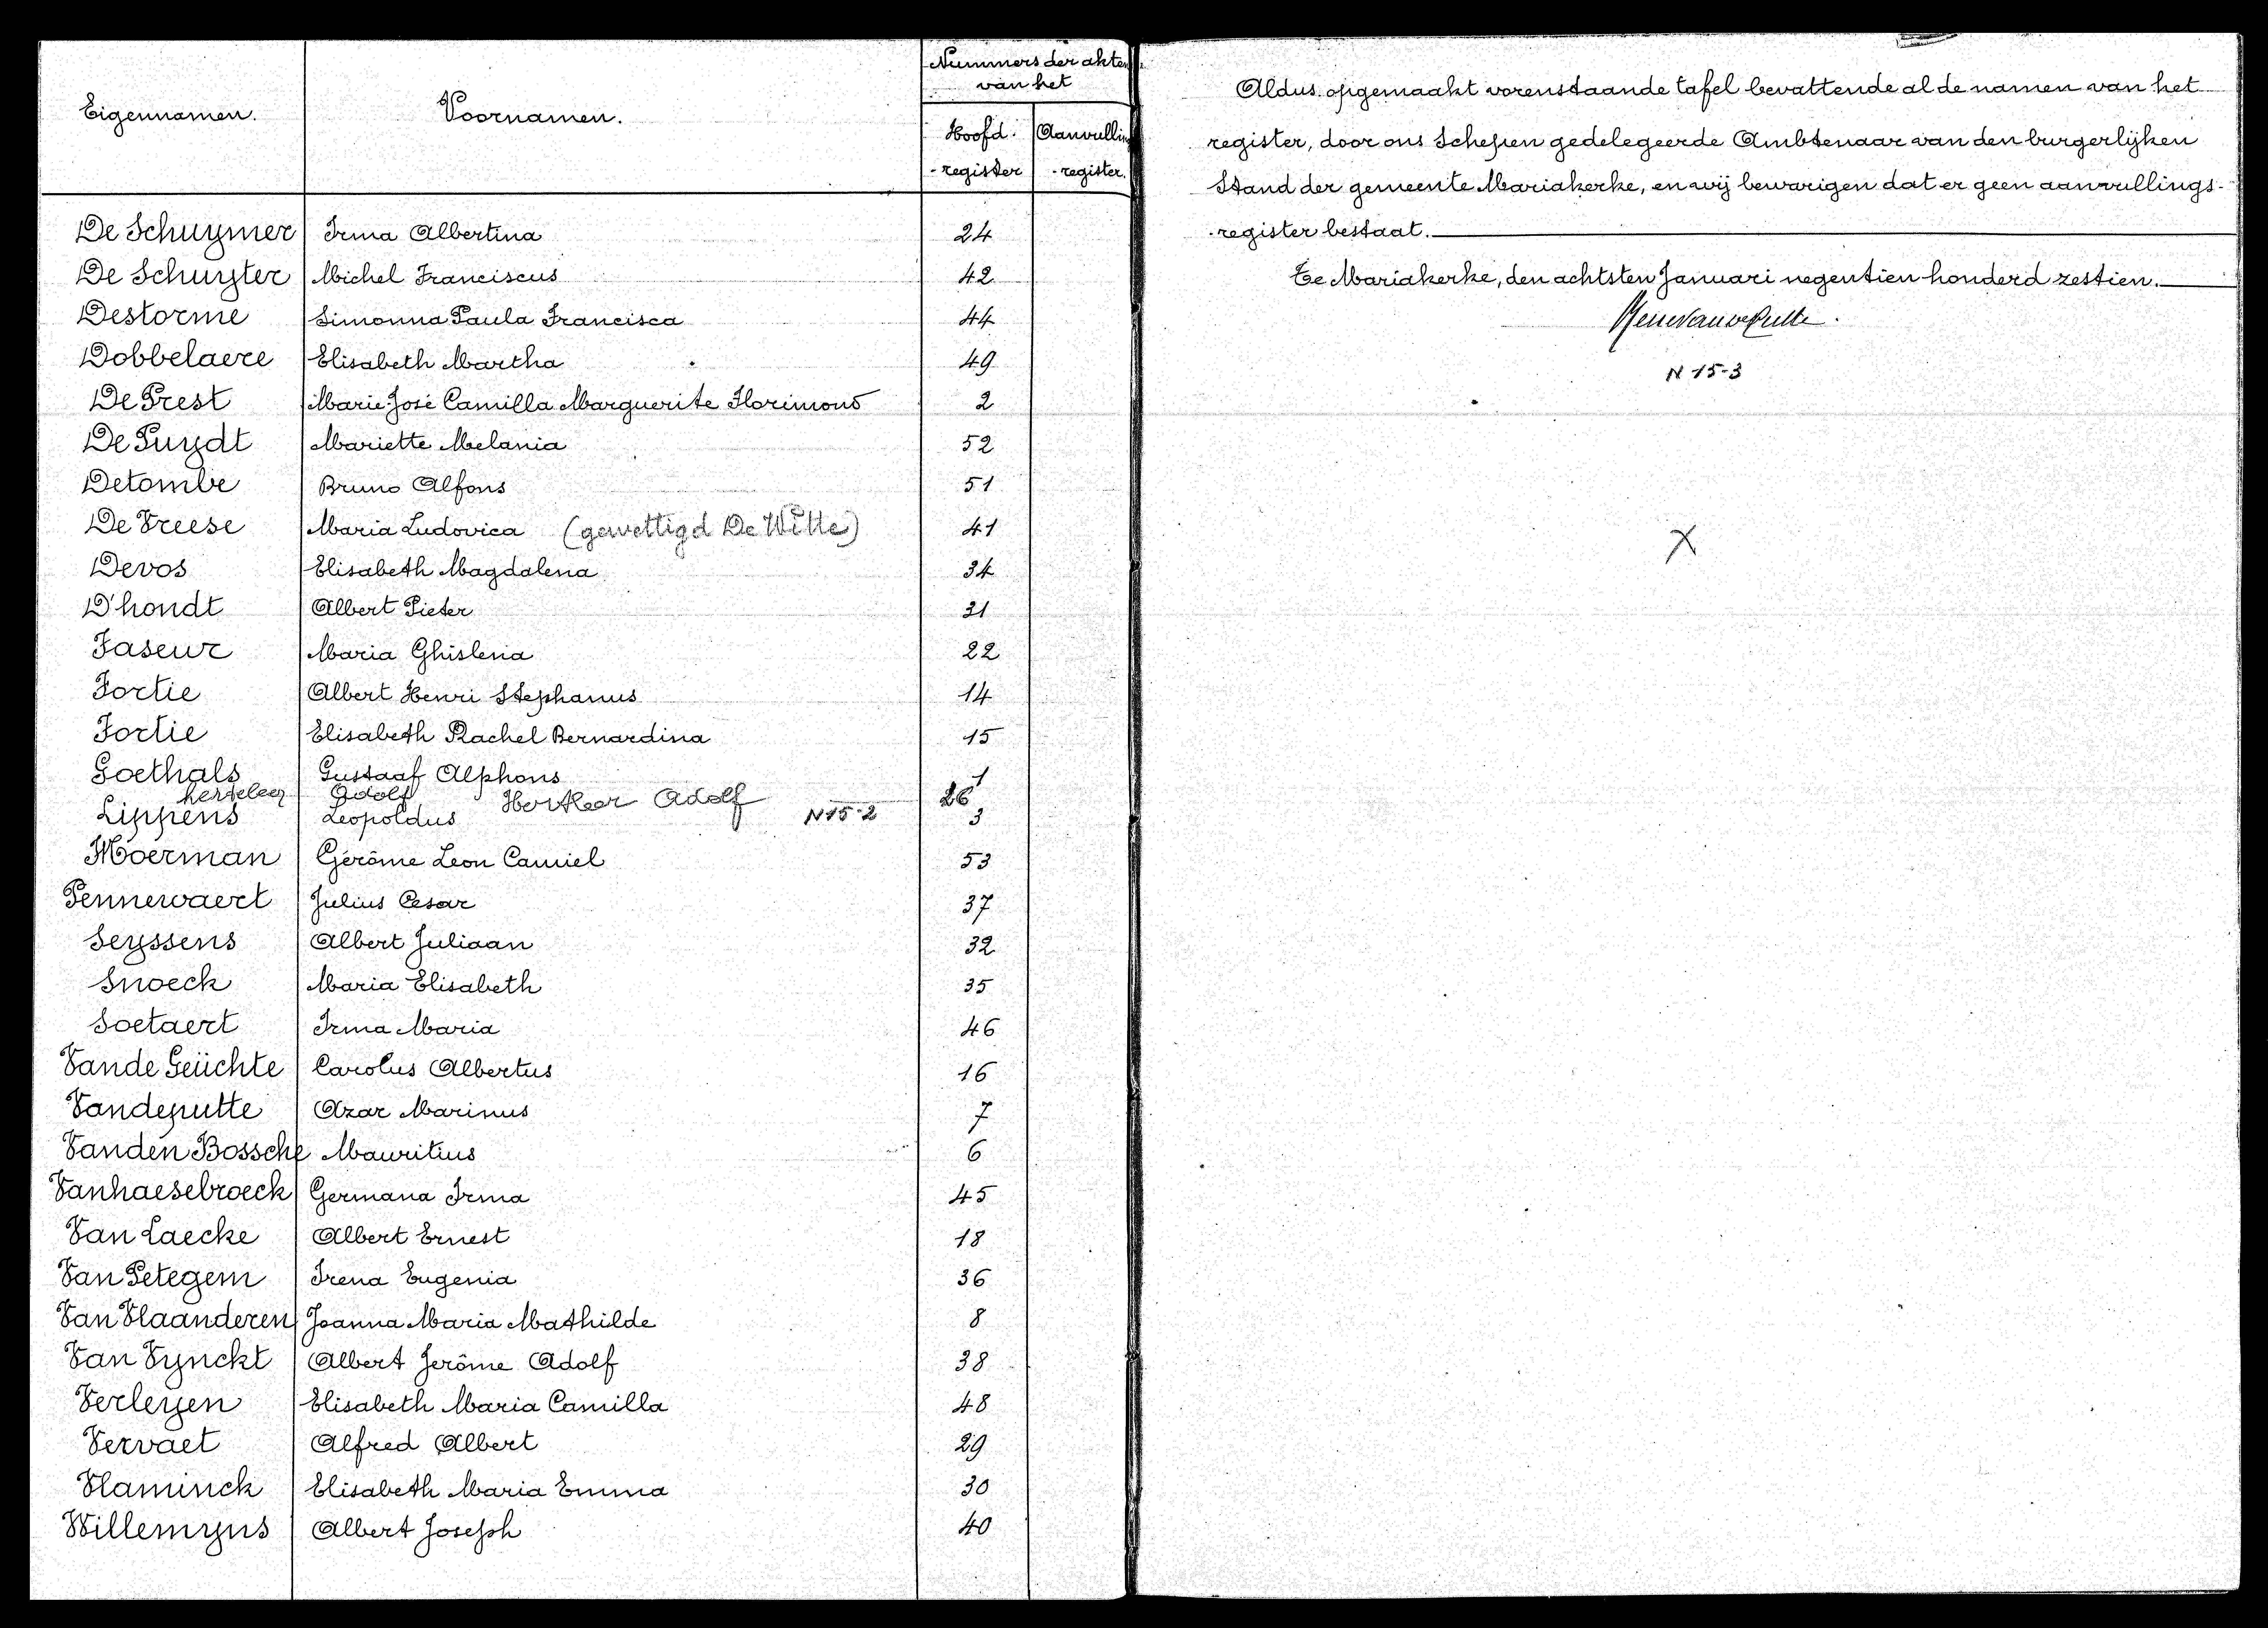 Eigennamen. Voornamen. Nummers der akten
van het
Hoofd- Aanvullin
-register -register.
De Schuymer Irma Albertina 24
De Schuyter Michel Franciscus 42
Destorme Simonna Paula Francisca 44
Dobbelaere Elisabeth Martha 49
De Prest Marie-José Camilla Marguerite Florimond 2
De Puydt Mariette Melania 52
Detombe Bruno Alfons 51
De Vreese Maria Ludovica (gewettigd De Witte) 41
Devos Elisabeth Magdalena 34
D'hondt Albert Pieter 31
Faseur Maria Ghislena 22
Fortie Albert Henri Stephanus 14
Fortie Elisabeth Rachel Bernardina 15
Goethals Gustaaf Alphons 1
herteleer Adolf Herteleer Adolf 26
Lippens Leopoldus N 15-2 3
Moerman Gérôme Leon Camiel 53
Pennewaert Julius Cesar 37
Seyssens Albert Juliaan 32
Snoeck Maria Elisabeth 35
Soetaert Irma Maria 46
Vande Geüchte Carolus Albertus 16
Vandeputte Azar Marinus 7
Vanden Bossche Mauritius 6
Vanhaesebroeck Germana Irma 45
Van Laecke Albert Ernest 18
Van Petegem Irena Eugenia 36
Van Vlaanderen Joanna Maria Mathilde 8
Van Vynckt Albert Jerôme Adolf 38
Verleyen Elisabeth Maria Camilla 48
Vervaet Alfred Albert 29
Vlaminck Elisabeth Maria Emma 30
Willemyns Albert Joseph 40
Aldus opgemaakt vorenstaande tafel bevattende al de namen van het
register, door ons Schepen gedelegeerde Ambtenaar van den burgerlijken
Stand der gemeente Mariakerke, en wij bewarigen dat er geen aanvullings-
-register bestaat.
Te Mariakerke, den achtsten Januari negentien honderd zestien.
N 15-3
X